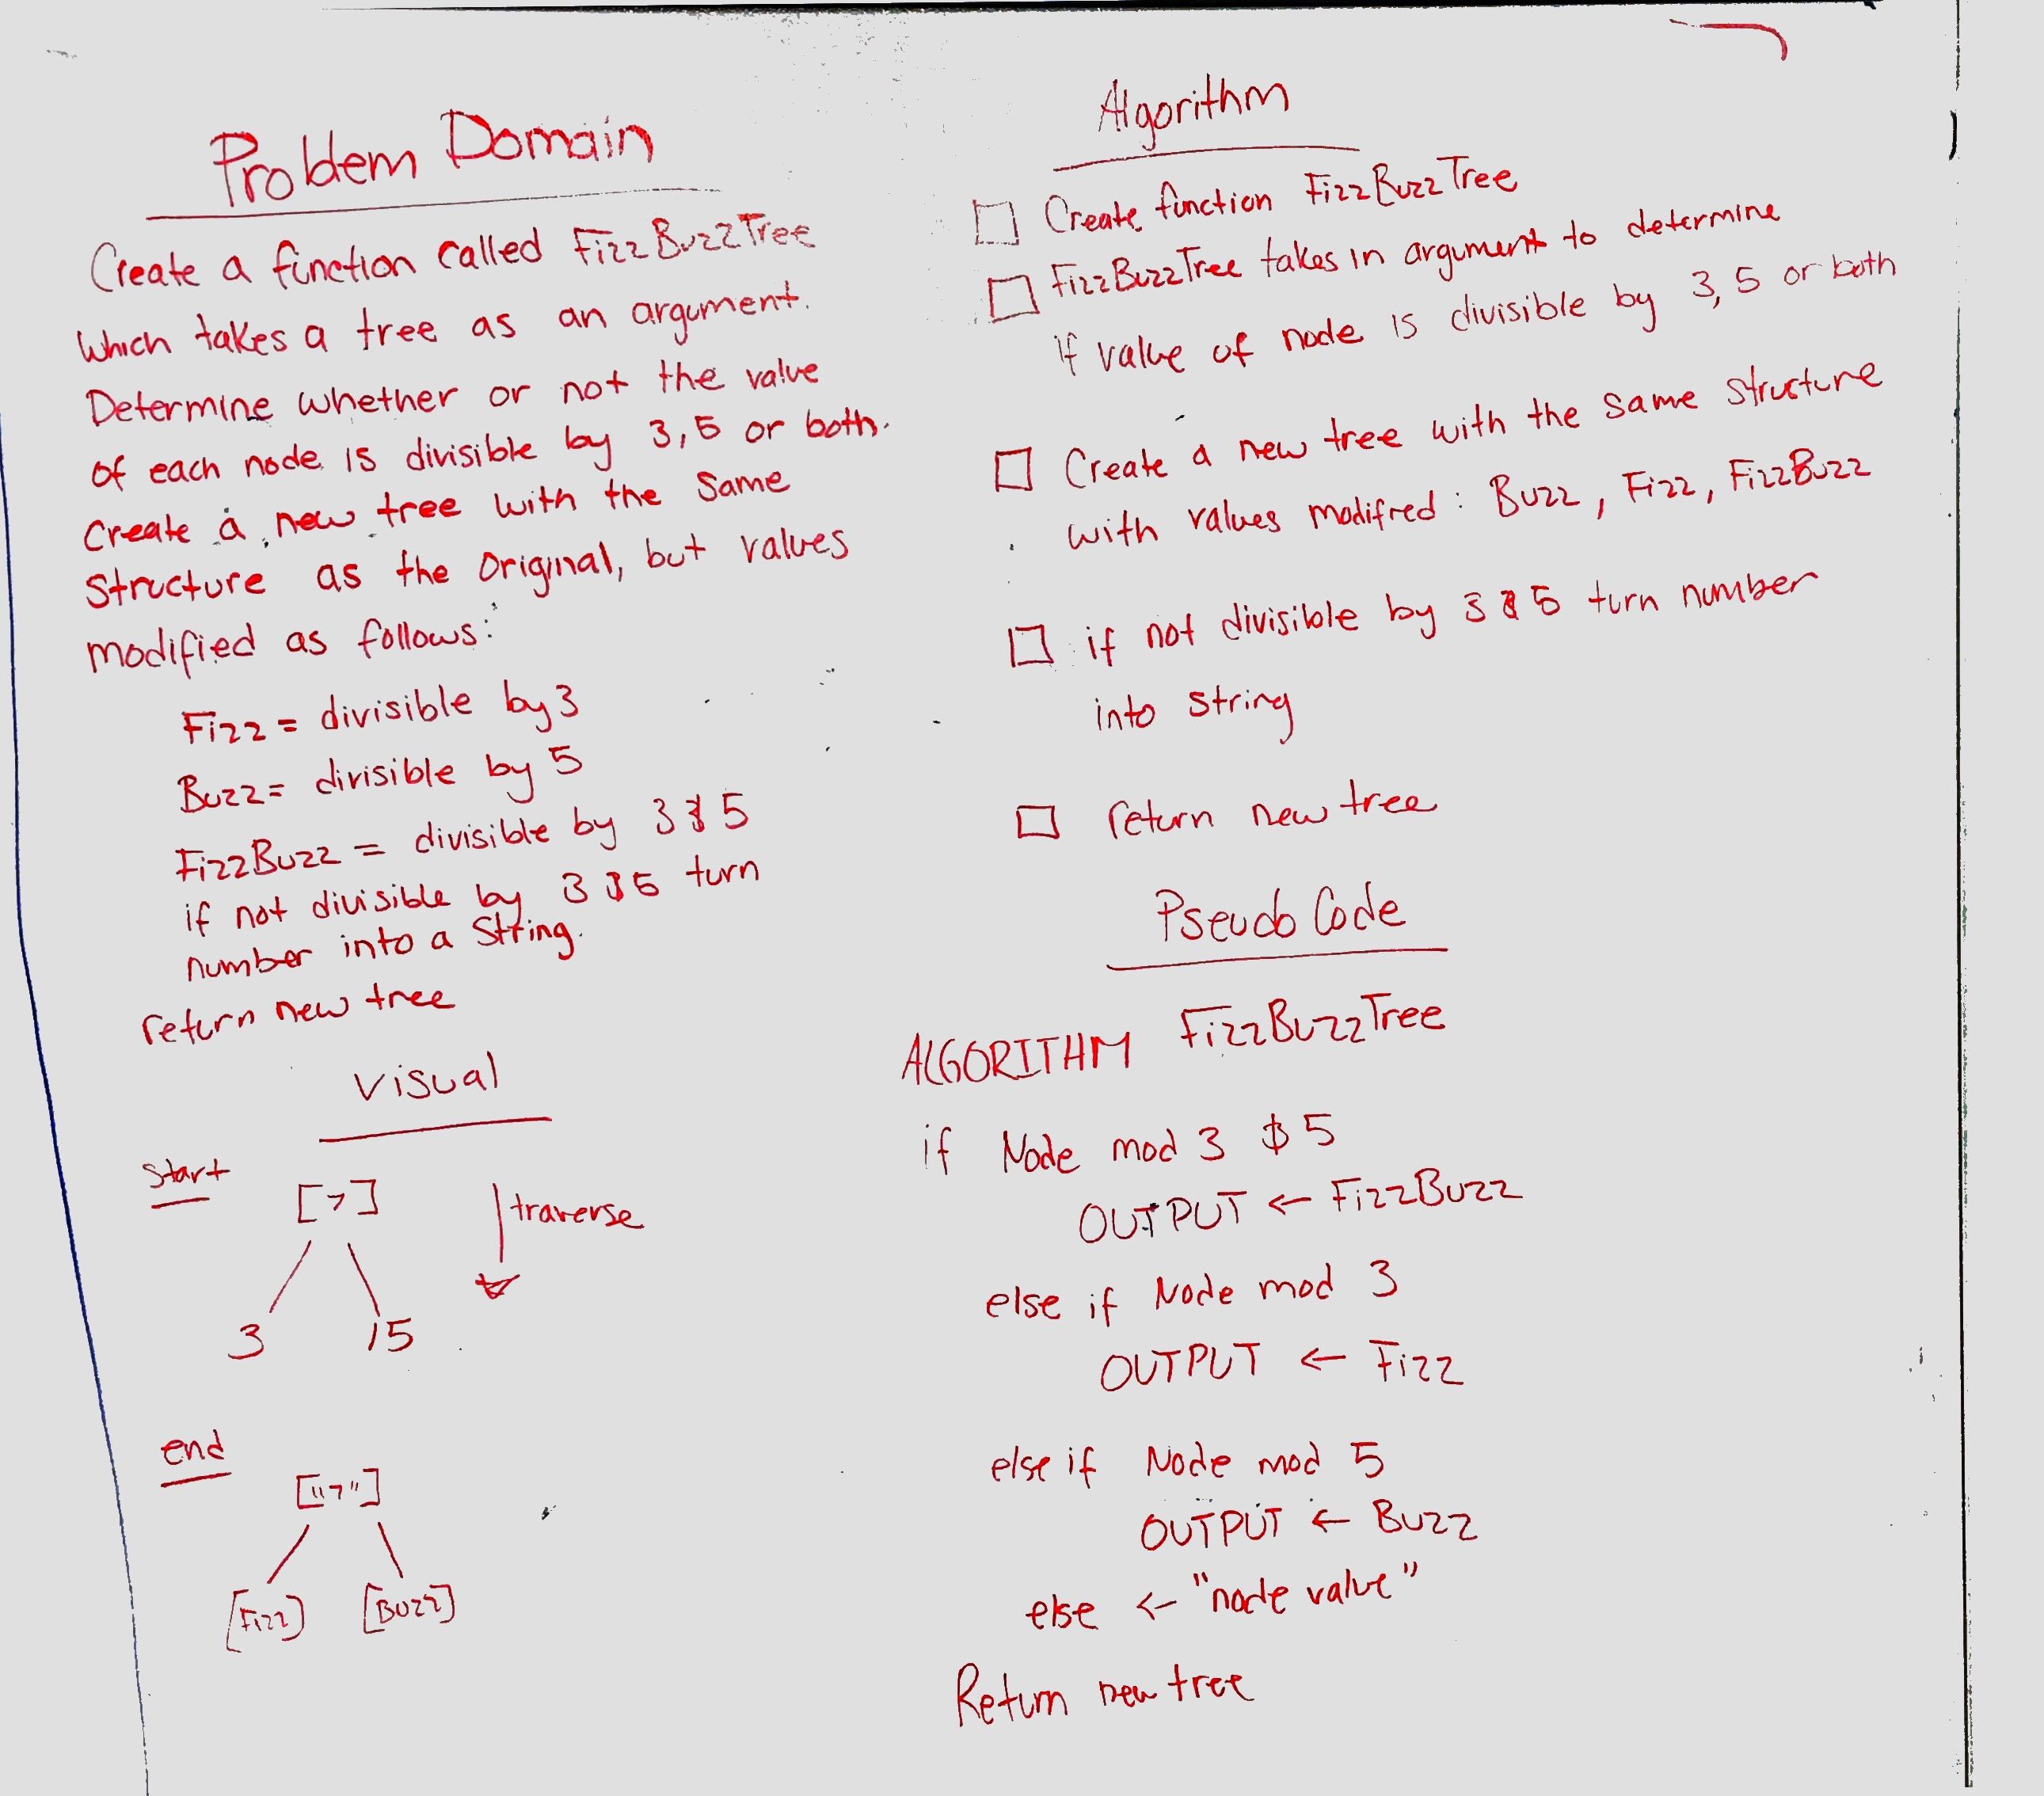 Problem Domain
Create a function called FizzBuzzTree
which takes a tree as an argument.
Determine whether or not the value
of each node is divisible by 3,5 or both.
Create a new tree with the same
structure as the original, but values
modified as follows:
Fizz = divisible by 3
Buzz = divisible by 5
FizzBuzz = divisible by 3 & 5
if not divisible by 3 & 5 turn
number into a string.
return new tree
Visual
Start
[7]
traverse
3 15
end
["7"]
[Fizz] [Buzz]
Algorithm
Create function FizzBuzzTree
FizzBuzzTree takes in argument to determine
if value of node is divisible by 3, 5 or both
Create a new tree with the same structure
with values modified : Buzz, Fizz, FizzBuzz
if not divisible by 3 & 5 turn number
into string
return new tree
Pseudo Code
ALGORITHM FizzBuzzTree
if Node mod 3 & 5
OUTPUT ← FizzBuzz
else if Node mod 3
OUTPUT ← Fizz
else if Node mod 5
OUTPUT ← Buzz
else ← "node value"
Return new tree